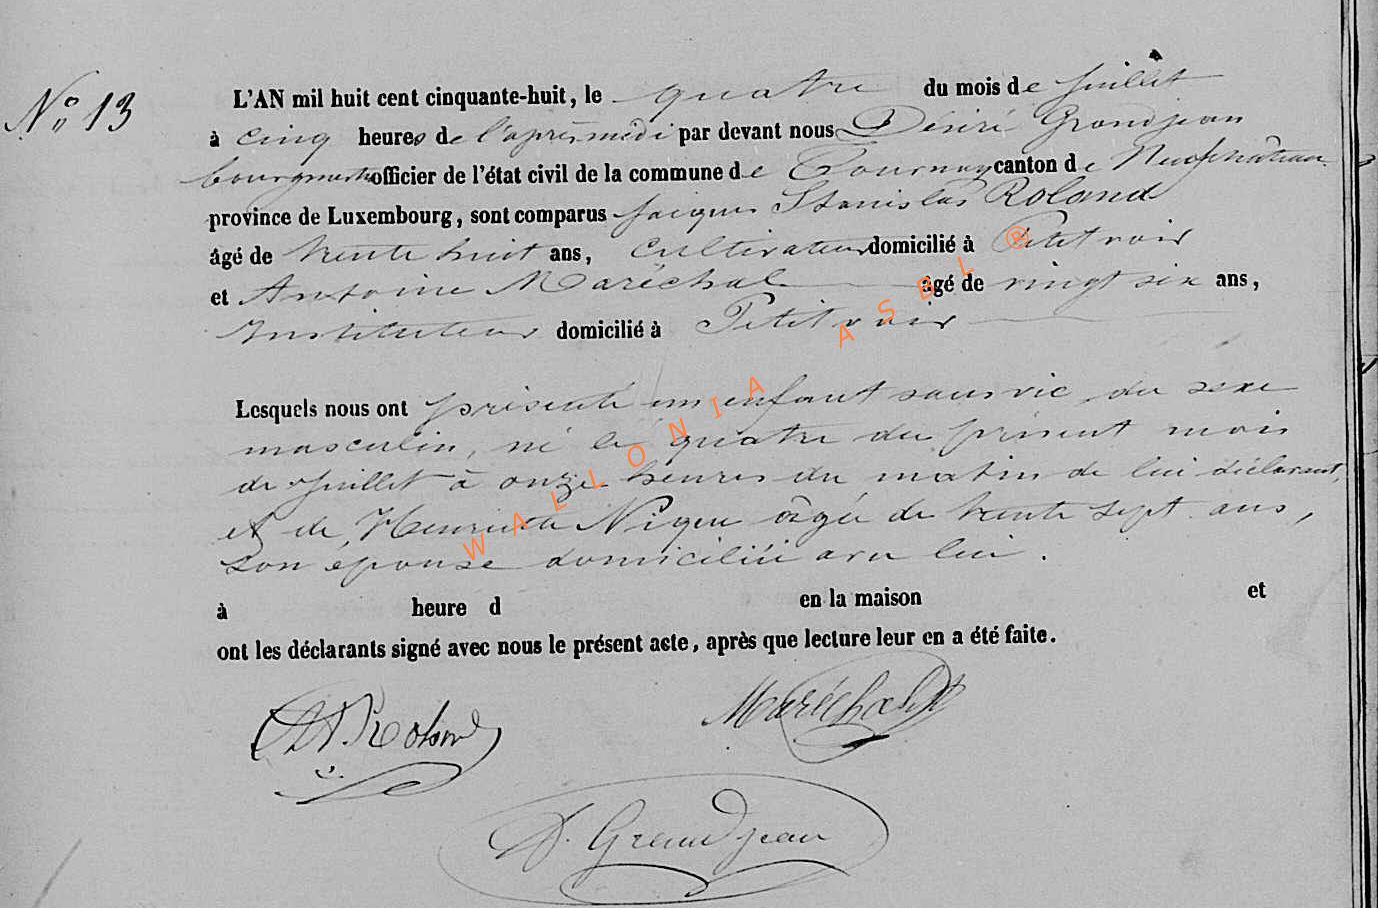 N° 13
L'AN mil huit cent cinquante-huit, le quatre du mois de juillet
à cinq heures de l'après midi par devant nous Désiré Grandjean
bourgmestre officier de l'état civil de la commune de Tournay canton de Neufchâteau
province de Luxembourg, sont comparus Jacques Stanislas Roland
âgé de trente huit ans, Cultivateur domicilié à Petitvoir
et Antoine Maréchal âgé de vingt six ans,
Instituteur domicilié à Petitvoir
Lesquels nous ont présenté un enfant sans vie du sexe
masculin, né le quatre du présent mois
de juillet à onze heures du matin de lui déclarant,
et de Henriette âgée de trente sept ans,
son épouse domiciliée avec lui.
à heure d en la maison et
ont les déclarants signé avec nous le présent acte, après que lecture leur en a été faite.
Roland Maréchal
D. Grandjean
WALLONIA ASBL ®